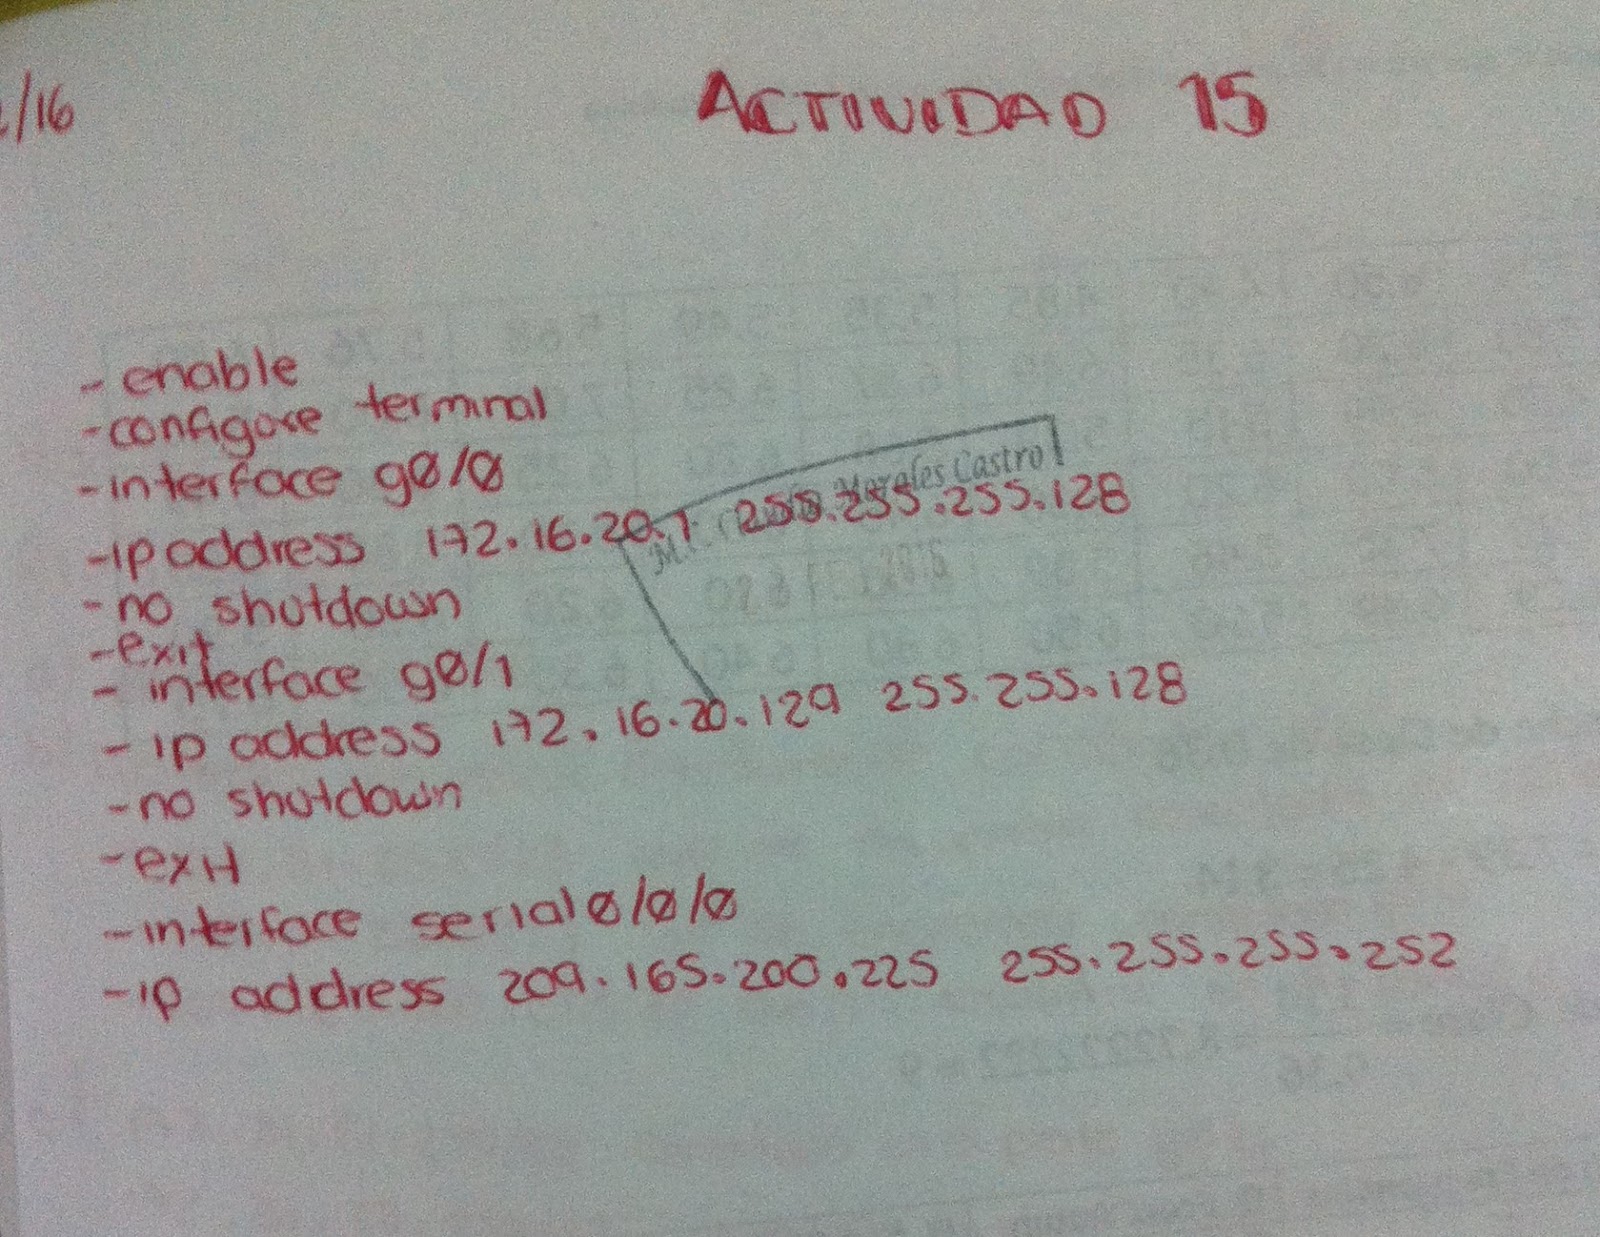 /16
ACTIVIDAD 15
- enable
- configure terminal
- interface g0/0
- ip address 172.16.20.1 255.255.255.128
Morales Castro
- no shutdown
- exit
- interface g0/1
- ip address 172.16.20.129 255.255.128
- no shutdown
- exit
- interface serial 0/0/0
- ip address 209.165.200.225 255.255.255.252